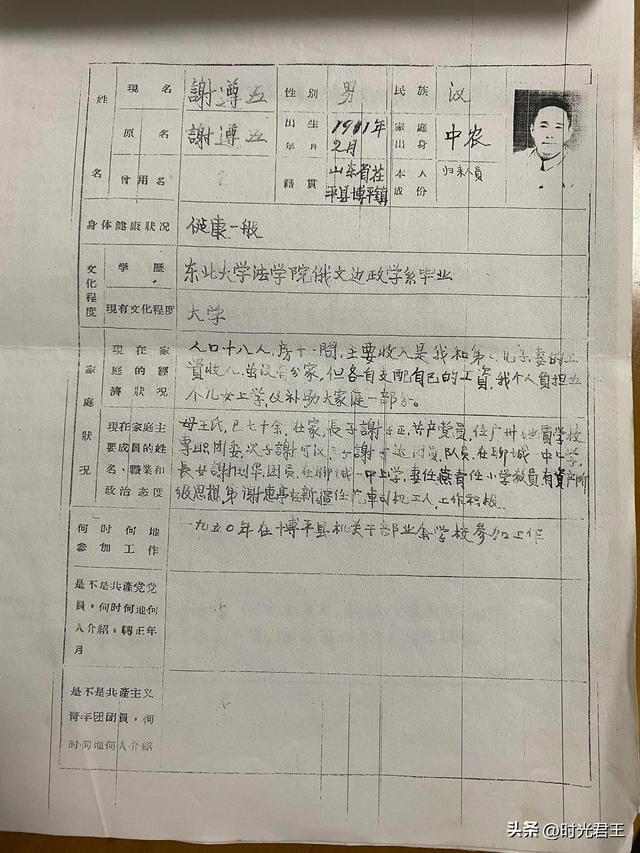 姓名
現名 謝遵五 性別 男 民族 汉
原名 謝遵五 出生年月 1911年2月 家庭出身 中农
曾用名 籍貫 山东省茌平县博平镇 本人成份 归来人員
身体健康狀况 健康一般
文化程度
学歷 东北大学法学院俄文边政学系毕业
現有文化程度 大学
家庭狀况
現在家庭的經濟狀况
人口十八人,房十間,主要收入是我和第
資收入,虽没有分家,但各自支配自己的工資,我个人負担五
个儿女上学,仅补助大家庭一部分。
現在家庭主要成員的姓名、職業和政治态度
母王氏,已七十余,在家,長子謝正,共产党員,任广州地質学校
專职团委,次子謝可汉,队員,在聊城一中上学,
長女謝华团員,在聊城一中上学,妻任燕青任小学教員有資产阶
级思想,弟謝惠亭在新疆任汽車司机工人,工作积极.
何时何地参加工作
一九五〇年在博平县机关干部业余学校参加工作
是不是共產党党
員,何时何地何
人介紹,轉正年
月
是不是共產主义
青年团团員,何
时何地何人介紹
头条 @时光君王